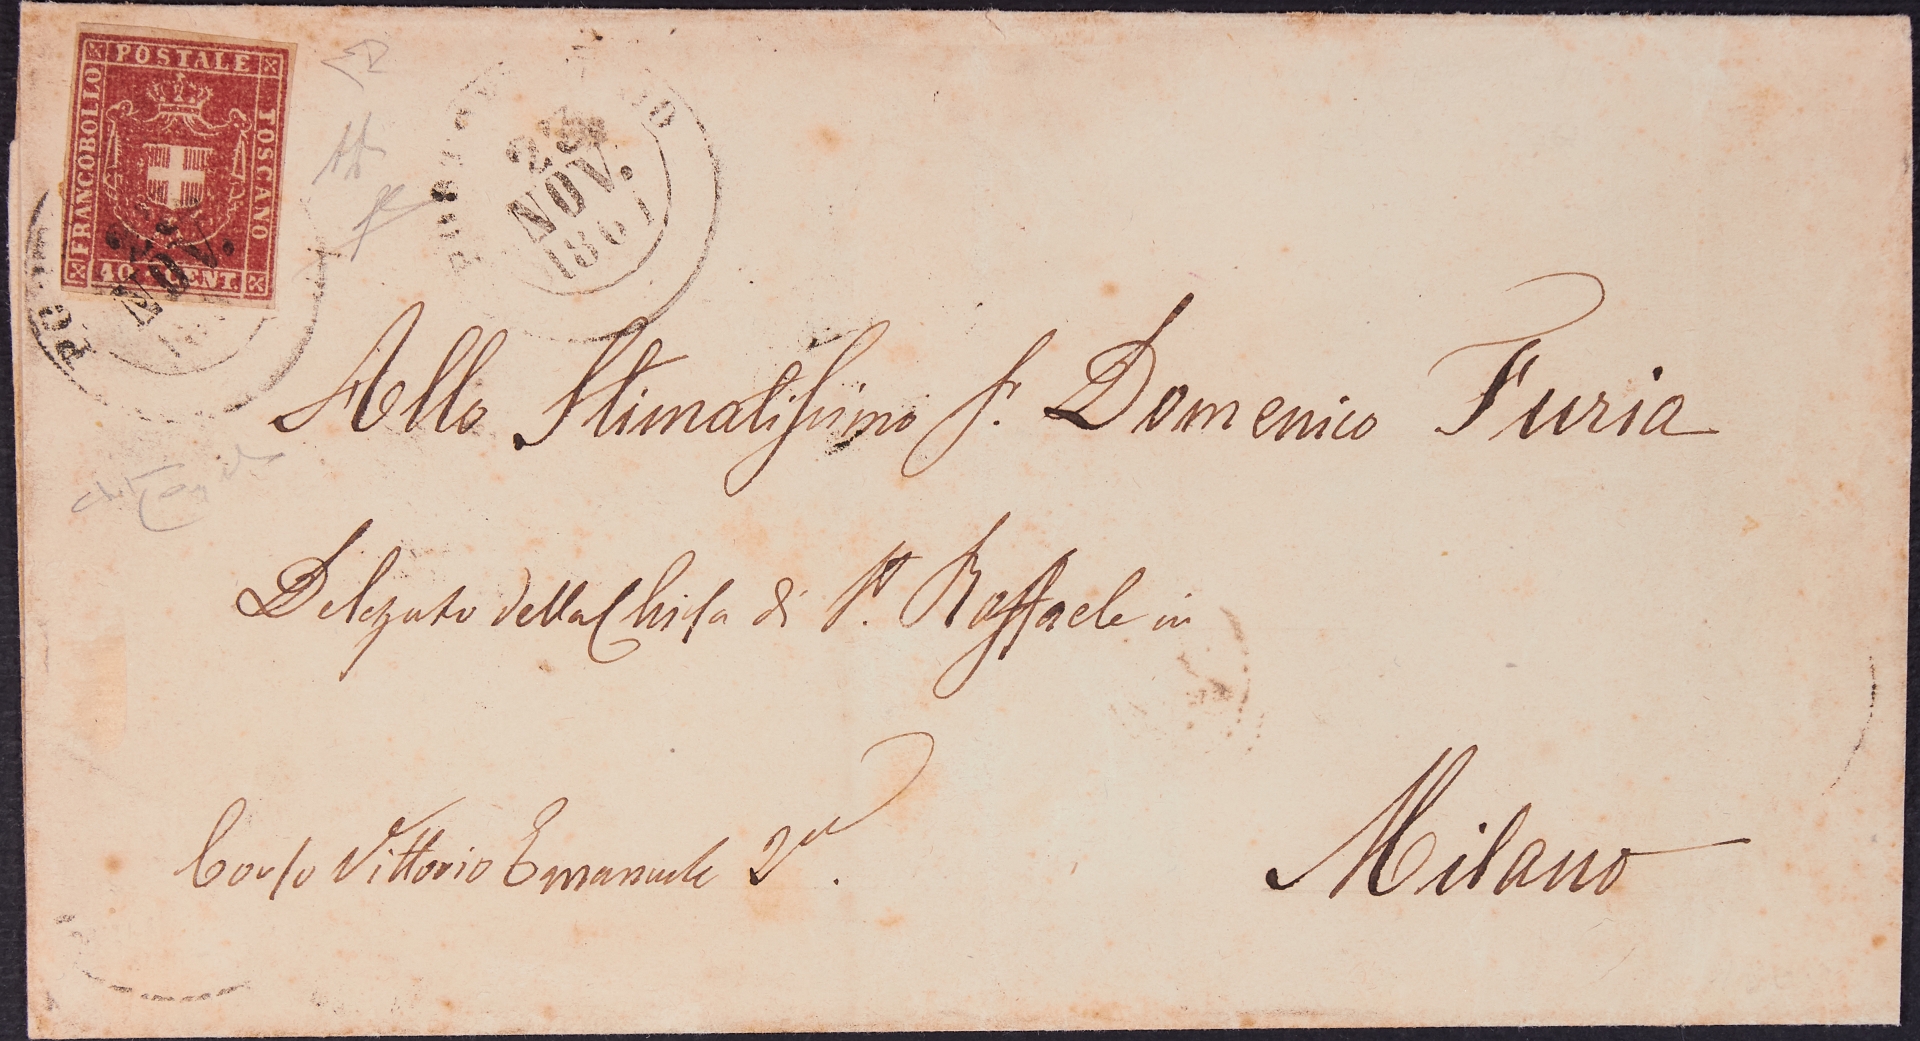 POSTALE
FRANCOBOLLO
TOSCANO
40 CENT.
NOV.
PO
23
NOV.
1861
Allo Stimatissimo S. Domenico Furia
Delegato della Chiesa di S. Raffaele in
Corso Vittorio Emanuele 2º.
Milano